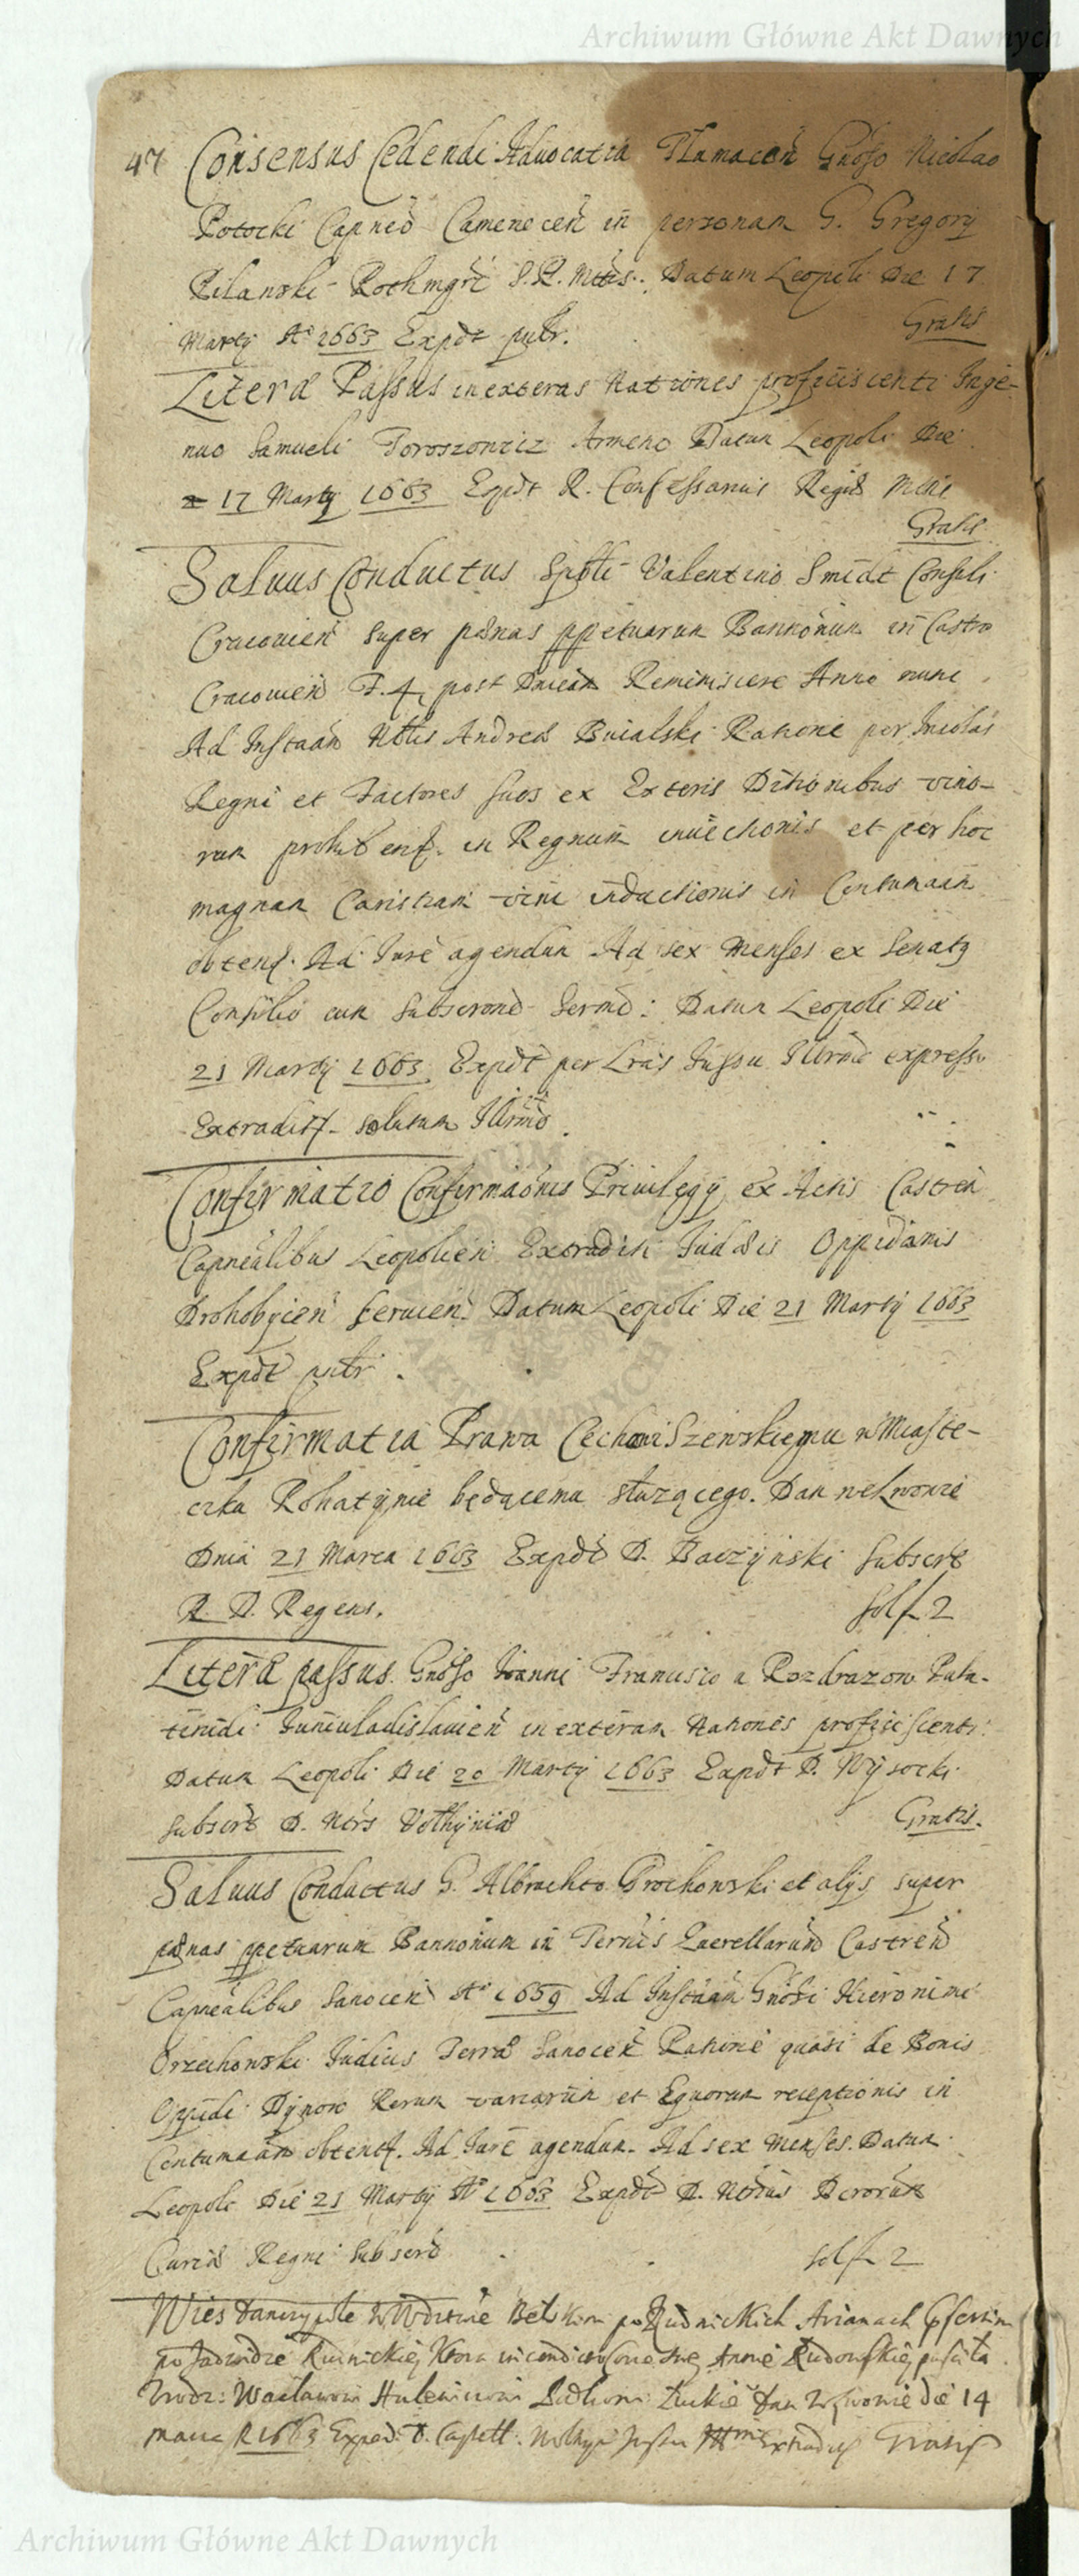 Archiwum Główne Akt Dawnych
47 Consensus Cedendi Aduocatia Tłumaceñ Gnoso Nicolao
Potocki Capneo Cameneceñ in personam G. Gregorÿ
Bilanski Rothmgro S. R. Mttis. Datum Leopoli Die 17
Martÿ Aº 1663 Expdt putr.
Gratis
Litera Passus in exteras Nationes proficiscenti Inge-
nuo Samueli Toroszowicz Armeno Datum Leopoli Die
17 Martÿ 1663 Expdt R. Confessarius Regiæ Mttis
Gratis
Saluus Conductus Spbli Valentino Smidt Consuli
Cracouieñ super pænas ppetuarum Bannonum in Castro
Cracouieñ F. 4 post Dnicam Reminiscere Anno nunc
Ad Instaãm Nblis Andreæ Buialski Ratione per Incolas
Regni et Factores suos ex Exteris Ditionibus vino-
rum in Regnum inuectionis et per hoc
magnam Caristiam vini inductionis in Contumaãm
obtent. Ad Jure agendum Ad sex Menses ex Senatq
Consilio cum Subscrone Sermo: Datum Leopoli Die
21 Martÿ 1663 Expdt per Lras Jussu Illrmo expresso
Extradit. solutum Illrmo.
Confirmatio Confirmaõnis Priuilegÿ ex Actis Castreñ
Capnealibus Leopolieñ Extraditi Judæis Oppidanis
Drohobycieñ seruieñ. Datum Leopoli Die 21 Martÿ 1663
Expdt putr.
Confirmatia Prawa Cechowi Szewskiemu w Miaste-
czku Rohatÿnie będącemu służącego. Dan we Lwowie
Dnia 21 Marca 1663 Expdt D. Baczÿnski Subscrt
R. D. Regens.
solf 2
Litera passus Gnoso Joanni Francisco a Rozdrazow Pala-
tinidi Juniuladislauieñ in exteram Nationes proficiscenti
Datum Leopoli Die 20 Martÿ 1663 Expdt D. Wÿsocki
subscrt D. Ntrs Volhÿniæ
Gratis.
Saluus Conductus G. Albrachto Grochowski et alÿs super
pænas ppetuarum Bannonum in Termis Querellarum Castreñ
Capnealibus Sanoceñ Aº 1659 Ad Instaãm Gnosi Hieronimi
Orzechowski Judicis Terræ Sanoceñ Ratione quasi de Bonis
Oppidi Dÿnow Rerum variarum et Equorum receptionis in
Contumaãm obtent. Ad Jure agendum. Ad sex Menses. Datum
Leopoli Die 21 Martÿ Aº 1663 Expdt D. Ntrius Decrorum
Curiæ Regni Subscrt
solf 2
Wies w Wdztwie Bełskim po Rudnickich Arianach
po Jadwidze Rudnickiej Ktora Annie Rudowskiej puscila
Urodz: Wacławowi Hulewiczowi Dan we Lwowie die 14
marca R 1663 Exped: D. Castell. Wolhyn Jussu Illmi Extradit Gratis
Archiwum Główne Akt Dawnych